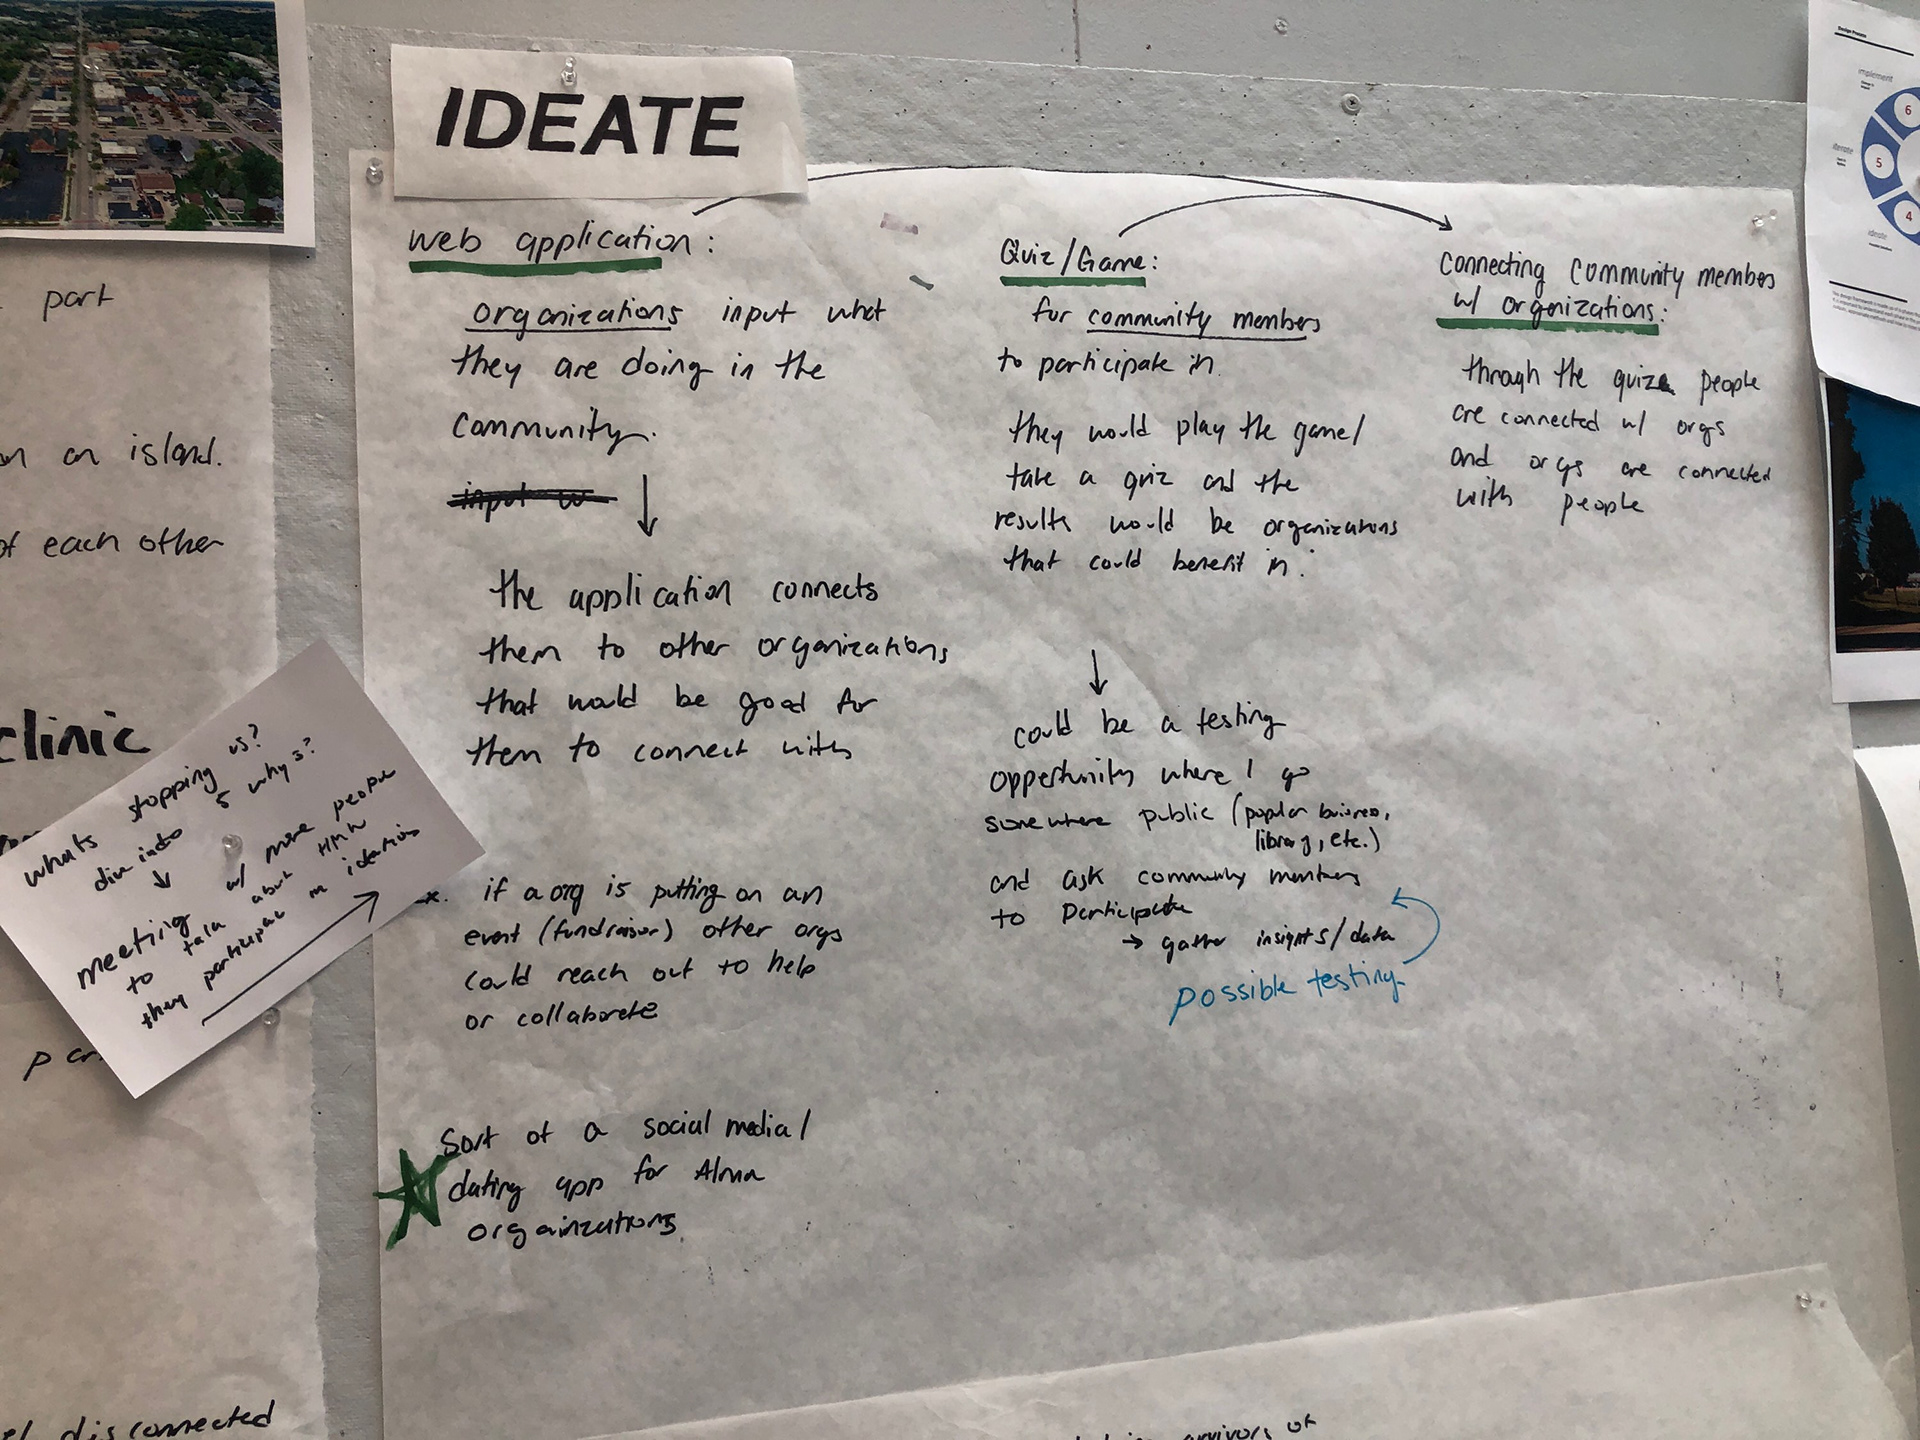 IDEATE
web application:
organizations input what
they are doing in the
community.
input w
the application connects
them to other organizations
that would be good for
them to connect with
ex. if a org is putting on an
event (fundraisor) other orgs
could reach out to help
or collaborate
Sort of a social media/
dating app for Alma
orgainzations.
Quiz/Game:
for community members
to participate in.
they would play the game/
take a quiz and the
results would be organizations
that could benefit in.
could be a testing
opportunity where I go
somewhere public (popular business,
library, etc.)
and ask community members
to participate
→ gather insights/data
possible testing
Connecting Community members
w/ organizations:
through the quiz people
are connected w/ orgs
and orgs are connected
with people
part
on an island.
of each other
clinic
whats stopping us?
dive into 5 whys?
meeting w/ more people
to talk about HMW
they participate in ideation
disconnected
survivors of
Design Process
implement
6
iterate
5
4
ideate